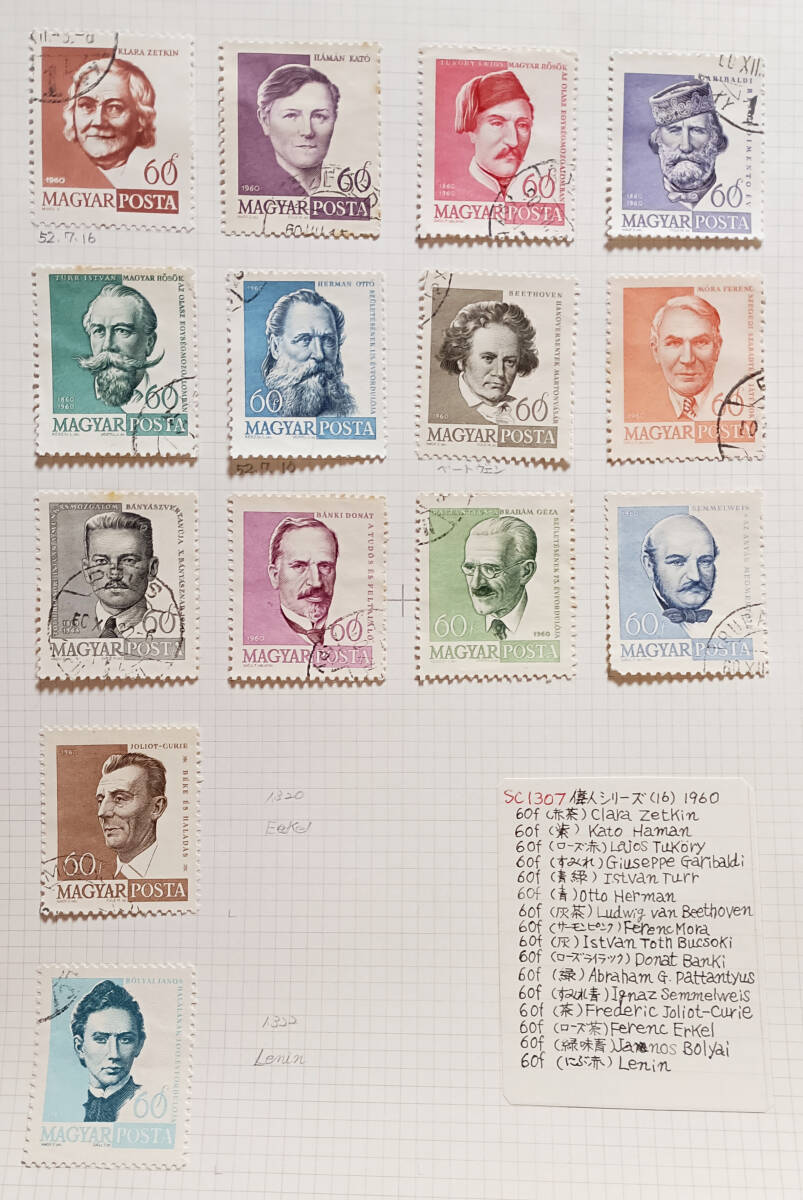 KLARA ZETKIN
1960
60f
MAGYAR POSTA
52.7.16
HÁMÁN KATÓ
1960
60f
MAGYAR POSTA
TÜKÖRY LAJOS MAGYAR HŐSÖK
AZ OLASZ EGYSÉGMOZGALOMBAN
1860
1960
60f
MAGYAR POSTA
GARIBALDI
1860
1960
60f
MAGYAR POSTA
TÜRR ISTVÁN MAGYAR HŐSÖK
AZ OLASZ EGYSÉGMOZGALOMBAN
1860
1960
60
MAGYAR POSTA
1960
HERMAN OTTÓ
SZÜLETÉSÉNEK 125. ÉVFORDULÓJA
60f
MAGYAR POSTA
52.7.16
BEETHOVEN
HANGVERSENYEK MARTONVÁSÁR
1960
60f
MAGYAR POSTA
ベートヴェン
MÓRA FERENC
SZEGEDI SZABADTÉRI JÁTÉKOK
1960
60f
MAGYAR POSTA
BÁNYÁSZVÉRTANÚJA
X. BÁNYÁSZNAP 1960
60f
MAGYAR POSTA
BÁNKI DONÁT
A TUDÓS ÉS FELTALÁLÓ
1960
60f
MAGYAR POSTA
ÁBRAHÁM GÉZA
SZÜLETÉSÉNEK 75. ÉVFORDULÓJA
60f
1960
MAGYAR POSTA
1960
SEMMELWEIS
AZ ANYÁK MEGMENTŐJE
60f
MAGYAR POSTA
1960
JOLIOT-CURIE
BÉKE ÉS HALADÁS
60f
MAGYAR POSTA
1320
Erkel
BÓLYAI JÁNOS
HALÁLÁNAK 100. ÉVFORDULÓJA
60f
MAGYAR POSTA
1322
Lenin
SC1307 偉人シリーズ(16) 1960
60f (赤茶) Clara Zetkin
60f (紫) Kato Haman
60f (ローズ赤) Lajos Tukory
60f (すみれ) Giuseppe Garibaldi
60f (青緑) Istvan Turr
60f (青) Otto Herman
60f (灰茶) Ludwig van Beethoven
60f (サーモンピンク) Ferenc Mora
60f (灰) Istvan Toth Bucsoki
60f (ローズライラック) Donat Banki
60f (緑) Abraham G. Pattantyus
60f (すみれ青) Ignaz Semmelweis
60f (茶) Frederic Joliot-Curie
60f (ローズ茶) Ferenc Erkel
60f (緑味青) Janos Bolyai
60f (にぶ赤) Lenin